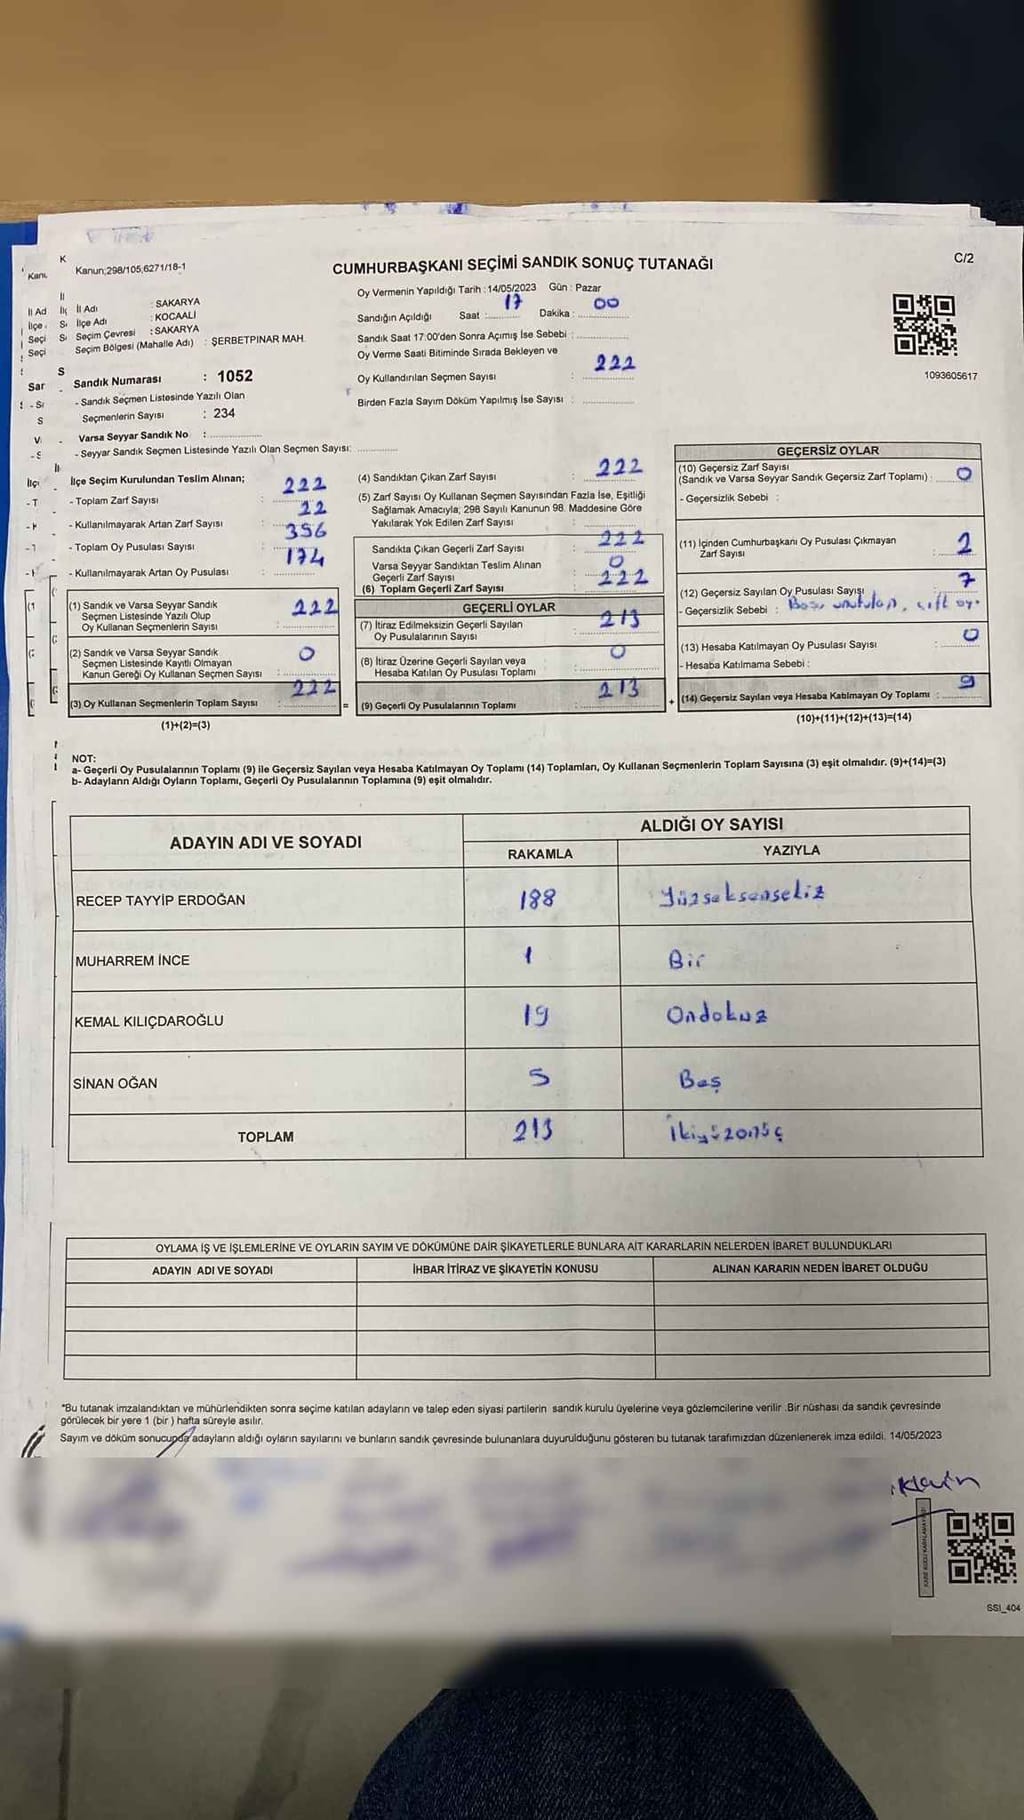 C/2
K
Kanun;298/105,6271/18-1
CUMHURBAŞKANI SEÇİMİ SANDIK SONUÇ TUTANAĞI
Oy Vermenin Yapıldığı Tarih : 14/05/2023 Gün : Pazar
İl Adı : SAKARYA
İlçe Adı : KOCAALİ
Seçim Çevresi : SAKARYA
Seçim Bölgesi (Mahalle Adı) : ŞERBETPINAR MAH.
Sandık Numarası : 1052
- Sandık Seçmen Listesinde Yazılı Olan
Seçmenlerin Sayısı : 234
Varsa Seyyar Sandık No :
- Seyyar Sandık Seçmen Listesinde Yazılı Olan Seçmen Sayısı:
Sandığın Açıldığı Saat : 17 Dakika : 00
Sandık Saat 17:00'den Sonra Açımış İse Sebebi :
Oy Verme Saati Bitiminde Sırada Bekleyen ve
Oy Kullandırılan Seçmen Sayısı : 222
Birden Fazla Sayım Döküm Yapılmış İse Sayısı :
1093605617
İlçe Seçim Kurulundan Teslim Alınan;
- Toplam Zarf Sayısı : 222
- Kullanılmayarak Artan Zarf Sayısı : 22
- Toplam Oy Pusulası Sayısı : 396
- Kullanılmayarak Artan Oy Pusulası : 174
(1) Sandık ve Varsa Seyyar Sandık
Seçmen Listesinde Yazılı Olup
Oy Kullanan Seçmenlerin Sayısı : 222
(2) Sandık ve Varsa Seyyar Sandık
Seçmen Listesinde Kayıtlı Olmayan
Kanun Gereği Oy Kullanan Seçmen Sayısı : 0
(3) Oy Kullanan Seçmenlerin Toplam Sayısı : 222
(1)+(2)=(3)
(4) Sandıktan Çıkan Zarf Sayısı : 222
(5) Zarf Sayısı Oy Kullanan Seçmen Sayısından Fazla İse, Eşitliği
Sağlamak Amacıyla; 298 Sayılı Kanunun 98. Maddesine Göre
Yakılarak Yok Edilen Zarf Sayısı :
Sandıkta Çıkan Geçerli Zarf Sayısı : 222
Varsa Seyyar Sandıktan Teslim Alınan
Geçerli Zarf Sayısı : 0
(6) Toplam Geçerli Zarf Sayısı : 222
GEÇERLİ OYLAR
(7) İtiraz Edilmeksizin Geçerli Sayılan
Oy Pusulalarının Sayısı : 213
(8) İtiraz Üzerine Geçerli Sayılan veya
Hesaba Katılan Oy Pusulası Toplamı : 0
(9) Geçerli Oy Pusulalarının Toplamı : 213
GEÇERSİZ OYLAR
(10) Geçersiz Zarf Sayısı
(Sandık ve Varsa Seyyar Sandık Geçersiz Zarf Toplamı) : 0
- Geçersizlik Sebebi :
(11) İçinden Cumhurbaşkanı Oy Pusulası Çıkmayan
Zarf Sayısı : 2
(12) Geçersiz Sayılan Oy Pusulası Sayısı : 7
- Geçersizlik Sebebi : Boş unutulan, çift oy.
(13) Hesaba Katılmayan Oy Pusulası Sayısı : 0
- Hesaba Katılmama Sebebi :
(14) Geçersiz Sayılan veya Hesaba Katılmayan Oy Toplamı : 9
(10)+(11)+(12)+(13)=(14)
NOT:
a- Geçerli Oy Pusulalarının Toplamı (9) ile Geçersiz Sayılan veya Hesaba Katılmayan Oy Toplamı (14) Toplamları, Oy Kullanan Seçmenlerin Toplam Sayısına (3) eşit olmalıdır. (9)+(14)=(3)
b- Adayların Aldığı Oyların Toplamı, Geçerli Oy Pusulalarının Toplamına (9) eşit olmalıdır.
ADAYIN ADI VE SOYADI ALDIĞI OY SAYISI
RAKAMLA YAZIYLA
RECEP TAYYİP ERDOĞAN 188 Yüzseksensekiz
MUHARREM İNCE 1 Bir
KEMAL KILIÇDAROĞLU 19 Ondokuz
SİNAN OĞAN 5 Beş
TOPLAM 213 İkiyüzonüç
OYLAMA İŞ VE İŞLEMLERİNE VE OYLARIN SAYIM VE DÖKÜMÜNE DAİR ŞİKAYETLERLE BUNLARA AİT KARARLARIN NELERDEN İBARET BULUNDUKLARI
ADAYIN ADI VE SOYADI İHBAR İTİRAZ VE ŞİKAYETİN KONUSU ALINAN KARARIN NEDEN İBARET OLDUĞU
*Bu tutanak imzalandıktan ve mühürlendikten sonra seçime katılan adayların ve talep eden siyasi partilerin sandık kurulu üyelerine veya gözlemcilerine verilir .Bir nüshası da sandık çevresinde
görülecek bir yere 1 (bir ) hafta süreyle asılır.
Sayım ve döküm sonucunda adayların aldığı oyların sayılarını ve bunların sandık çevresinde bulunanlara duyurulduğunu gösteren bu tutanak tarafımızdan düzenlenerek imza edildi. 14/05/2023
SSI_404